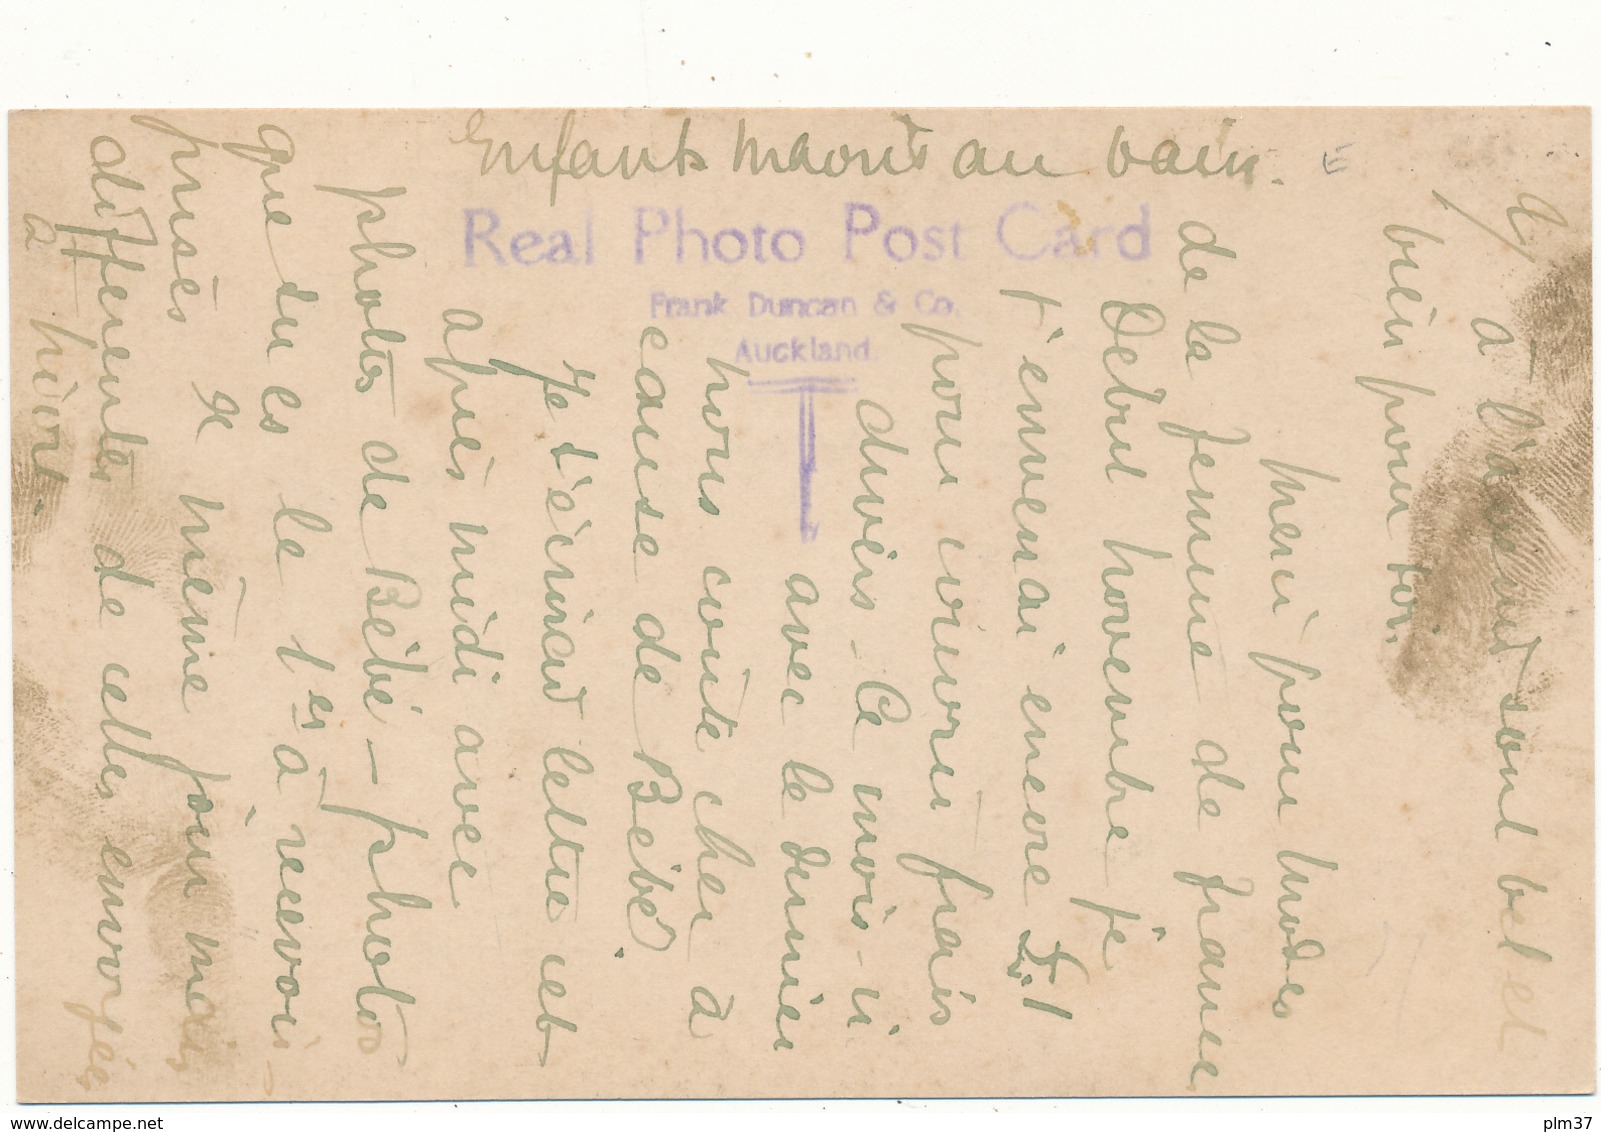 Enfants Maoris au bain.
Real Photo Post Card
Frank Duncan & Co.
Auckland.
a l'avenir sont bel et
bien pour toi.
Merci pour modes
de la femme de France
Debut novembre je
t'enverrai encore £1
pour couvrir frais
divers - Ce mois-ci
avec le dernier
nous coûte cher à
cause de Bébé.
Je t'écrirai lettre cet
après midi avec
photos de Bébé - photos
que du es le 1er à recevoir
prises le même jour mais
différentes de celles envoyées
à Niort.
www.delcampe.net
plm37